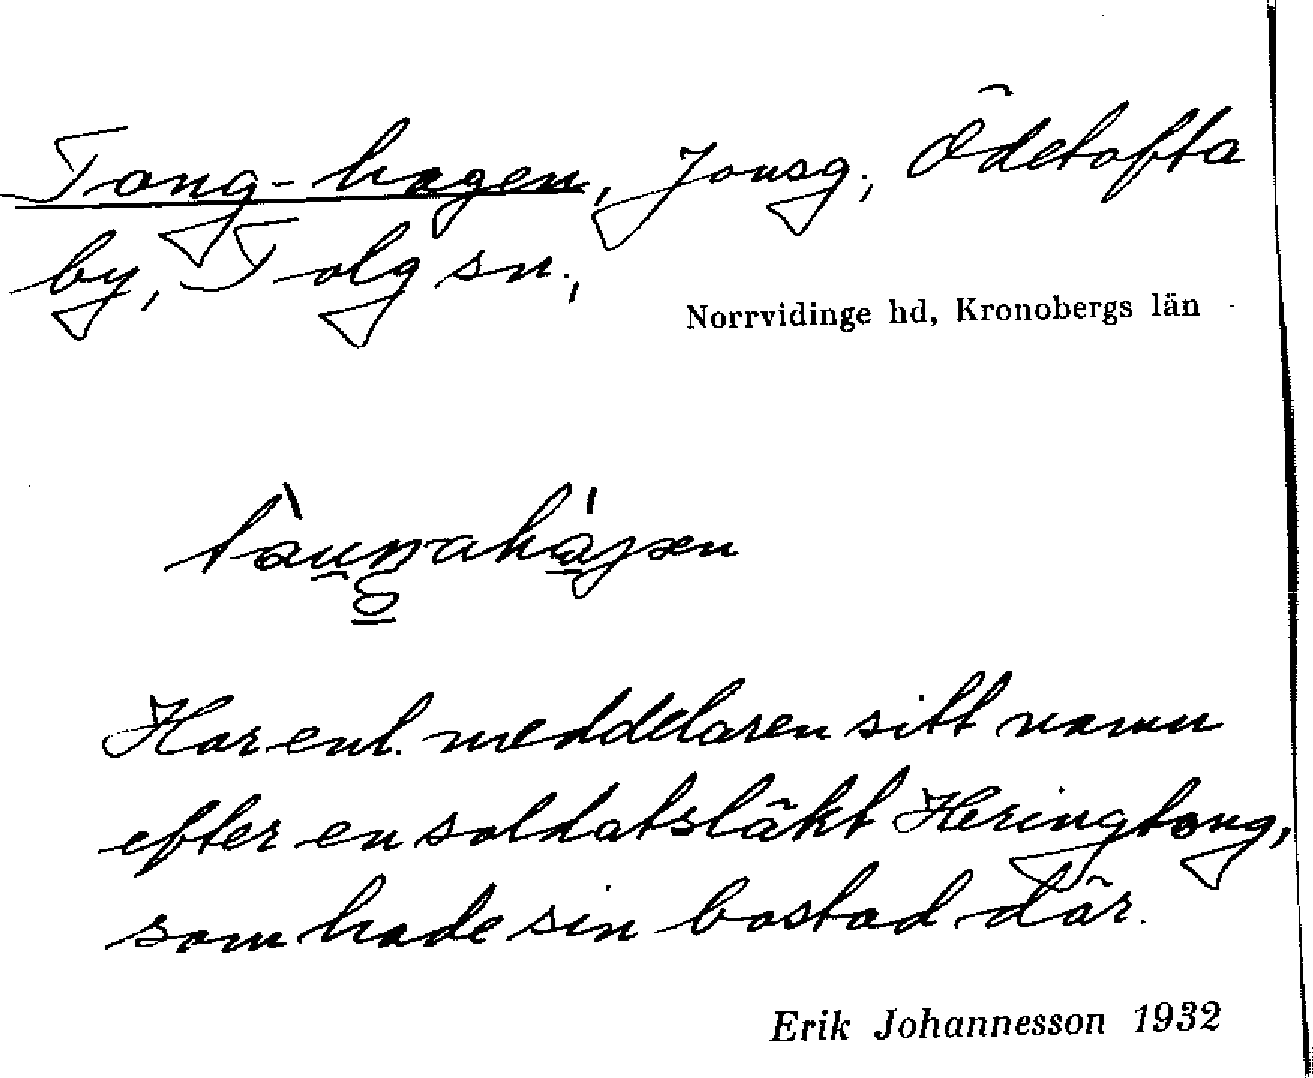 Tong-hagen, Jonsg., Ödetofta
by, Tolg sn.,
Norrvidinge hd, Kronobergs län
Har enl. meddelaren sitt namn
efter en soldatsläkt Heringtong,
som hade sin bostad där.
Erik Johannesson 1932